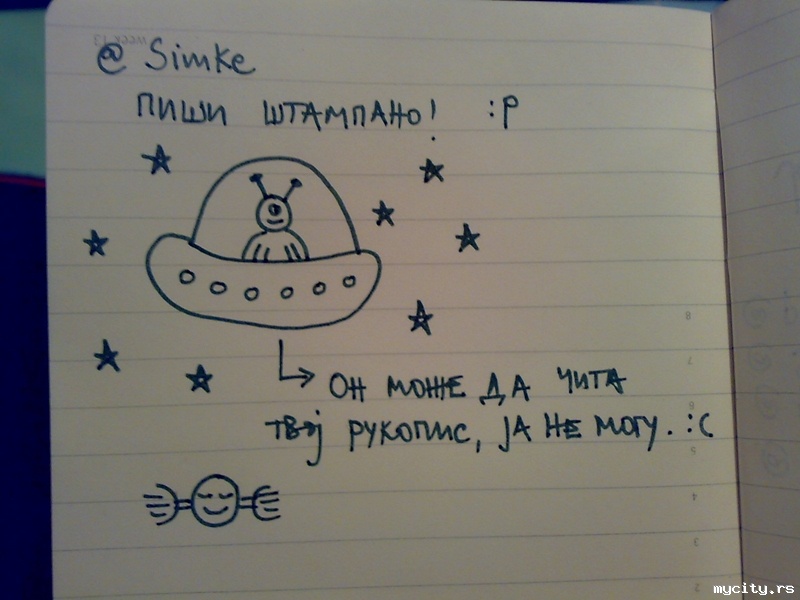 @ Simke
ПИШИ ШТАМПАНО! :P
ОН МОЖЕ ДА ЧИТА
ТВОЈ РУКОПИС, ЈА НЕ МОГУ. :C
8
7
6
5
4
3
2
mycity.rs